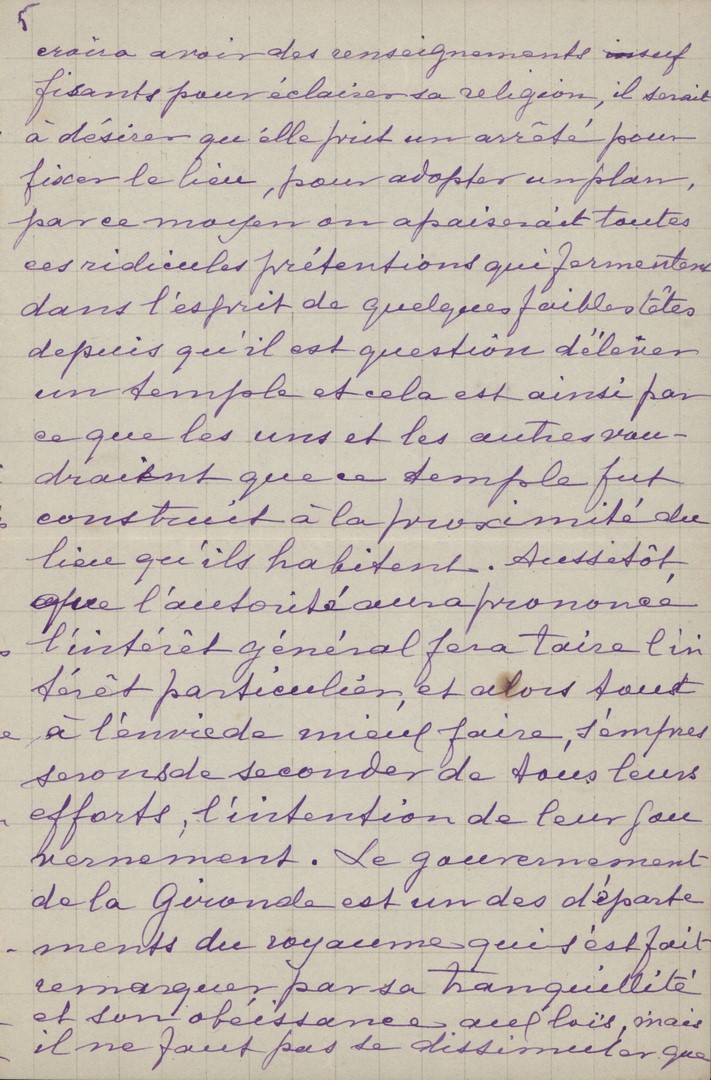 5
croira avoir des renseignements insuf
fisants pour éclairer sa religion, il serait
à désirer qu'elle prit un arrêté pour
fixer le lieu, pour adopter un plan,
par ce moyen on apaiserait toutes
ces ridicules prétentions qui fermentent
dans l'esprit de quelques faibles têtes
depuis qu'il est question d'élever
un temple et cela est ainsi par
ce que les uns et les autres vou-
draient que ce temple fut
construit à la proximité du
lieu qu'ils habitent. Aussitôt
que l'autorité aura prononcé
l'intérêt général fera taire l'in
térêt particulier, et alors tout
à l'envie de mieux faire, s'empres
serons de seconder de tous leurs
efforts, l'intention de leur gou
vernement. Le gouvernement
de la Gironde est un des départe
ments du royaume qui s'est fait
remarquer par sa tranquillité
et son obéissance aux lois, mais
il ne faut pas se dissimuler que